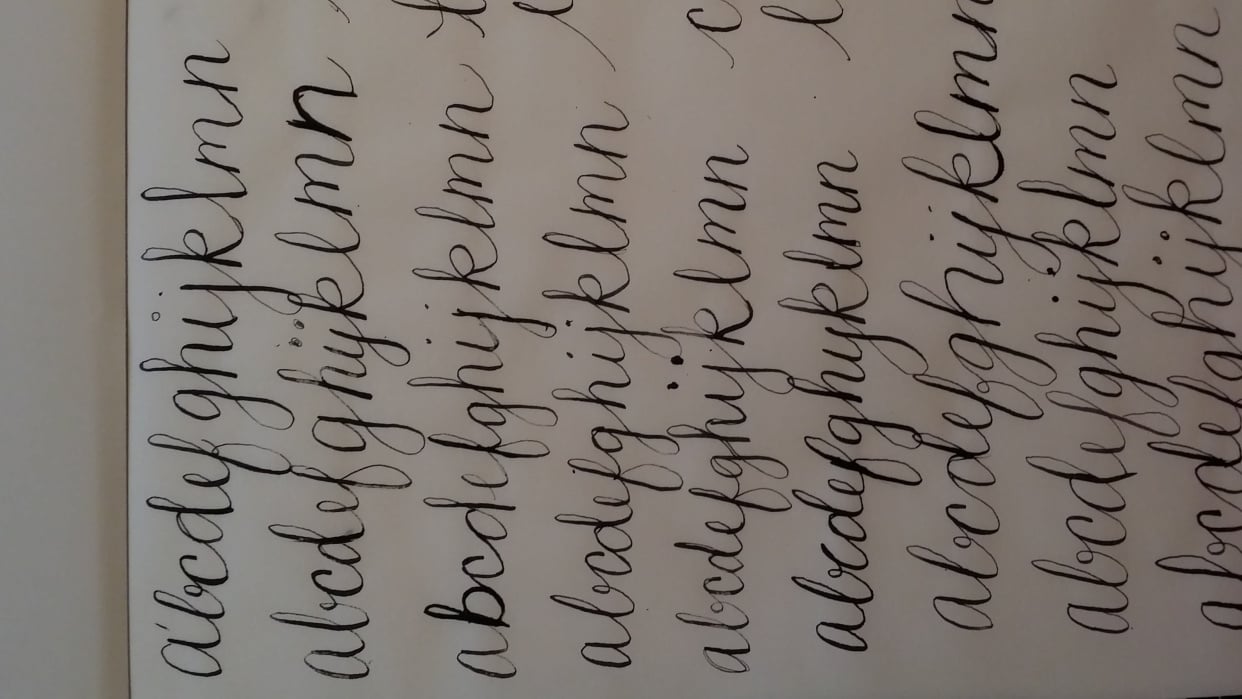 abcdefghijklmn
abcdefghijklmn
abcdefghijklmn
abcdefghijklmn
abcdefghijklmn
abcdefghijklmn
abcdefghijklmn
abcdefghijklmn
abcdefghijklmn